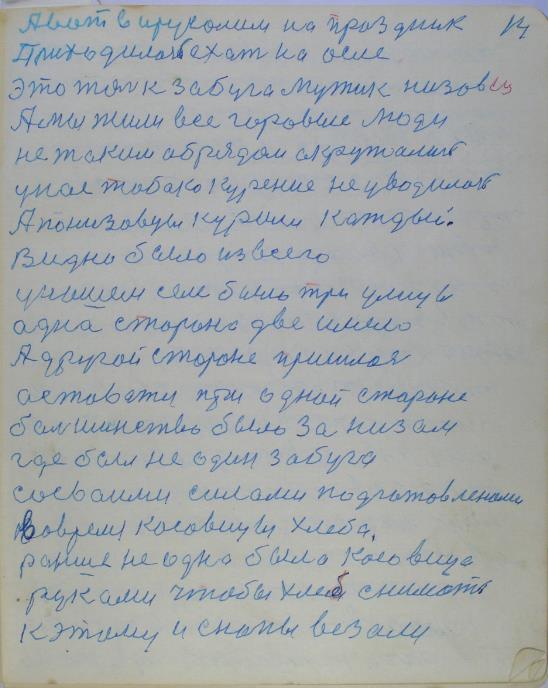 А вот в ирусолим на праздник 14
Приходилось ехат на осле
это тожк забуга Мужик низовец
А мы жили все горовые люди
не таким обрядом окружались
унас тобако курение не уводилось
А понизовцы курили каждый.
Видно было извсего
унашем селе было три улицы
адна сторона две имело
А другой стороне пришлося
астовати при одной стороне
болшинство было За низам
где был не один забуга
сосваими силами подготовлеными
вовремя косовицы хлеба,
ранше не одна была косовица
руками чтобы хлеб снимать
кэтому и снопы везали